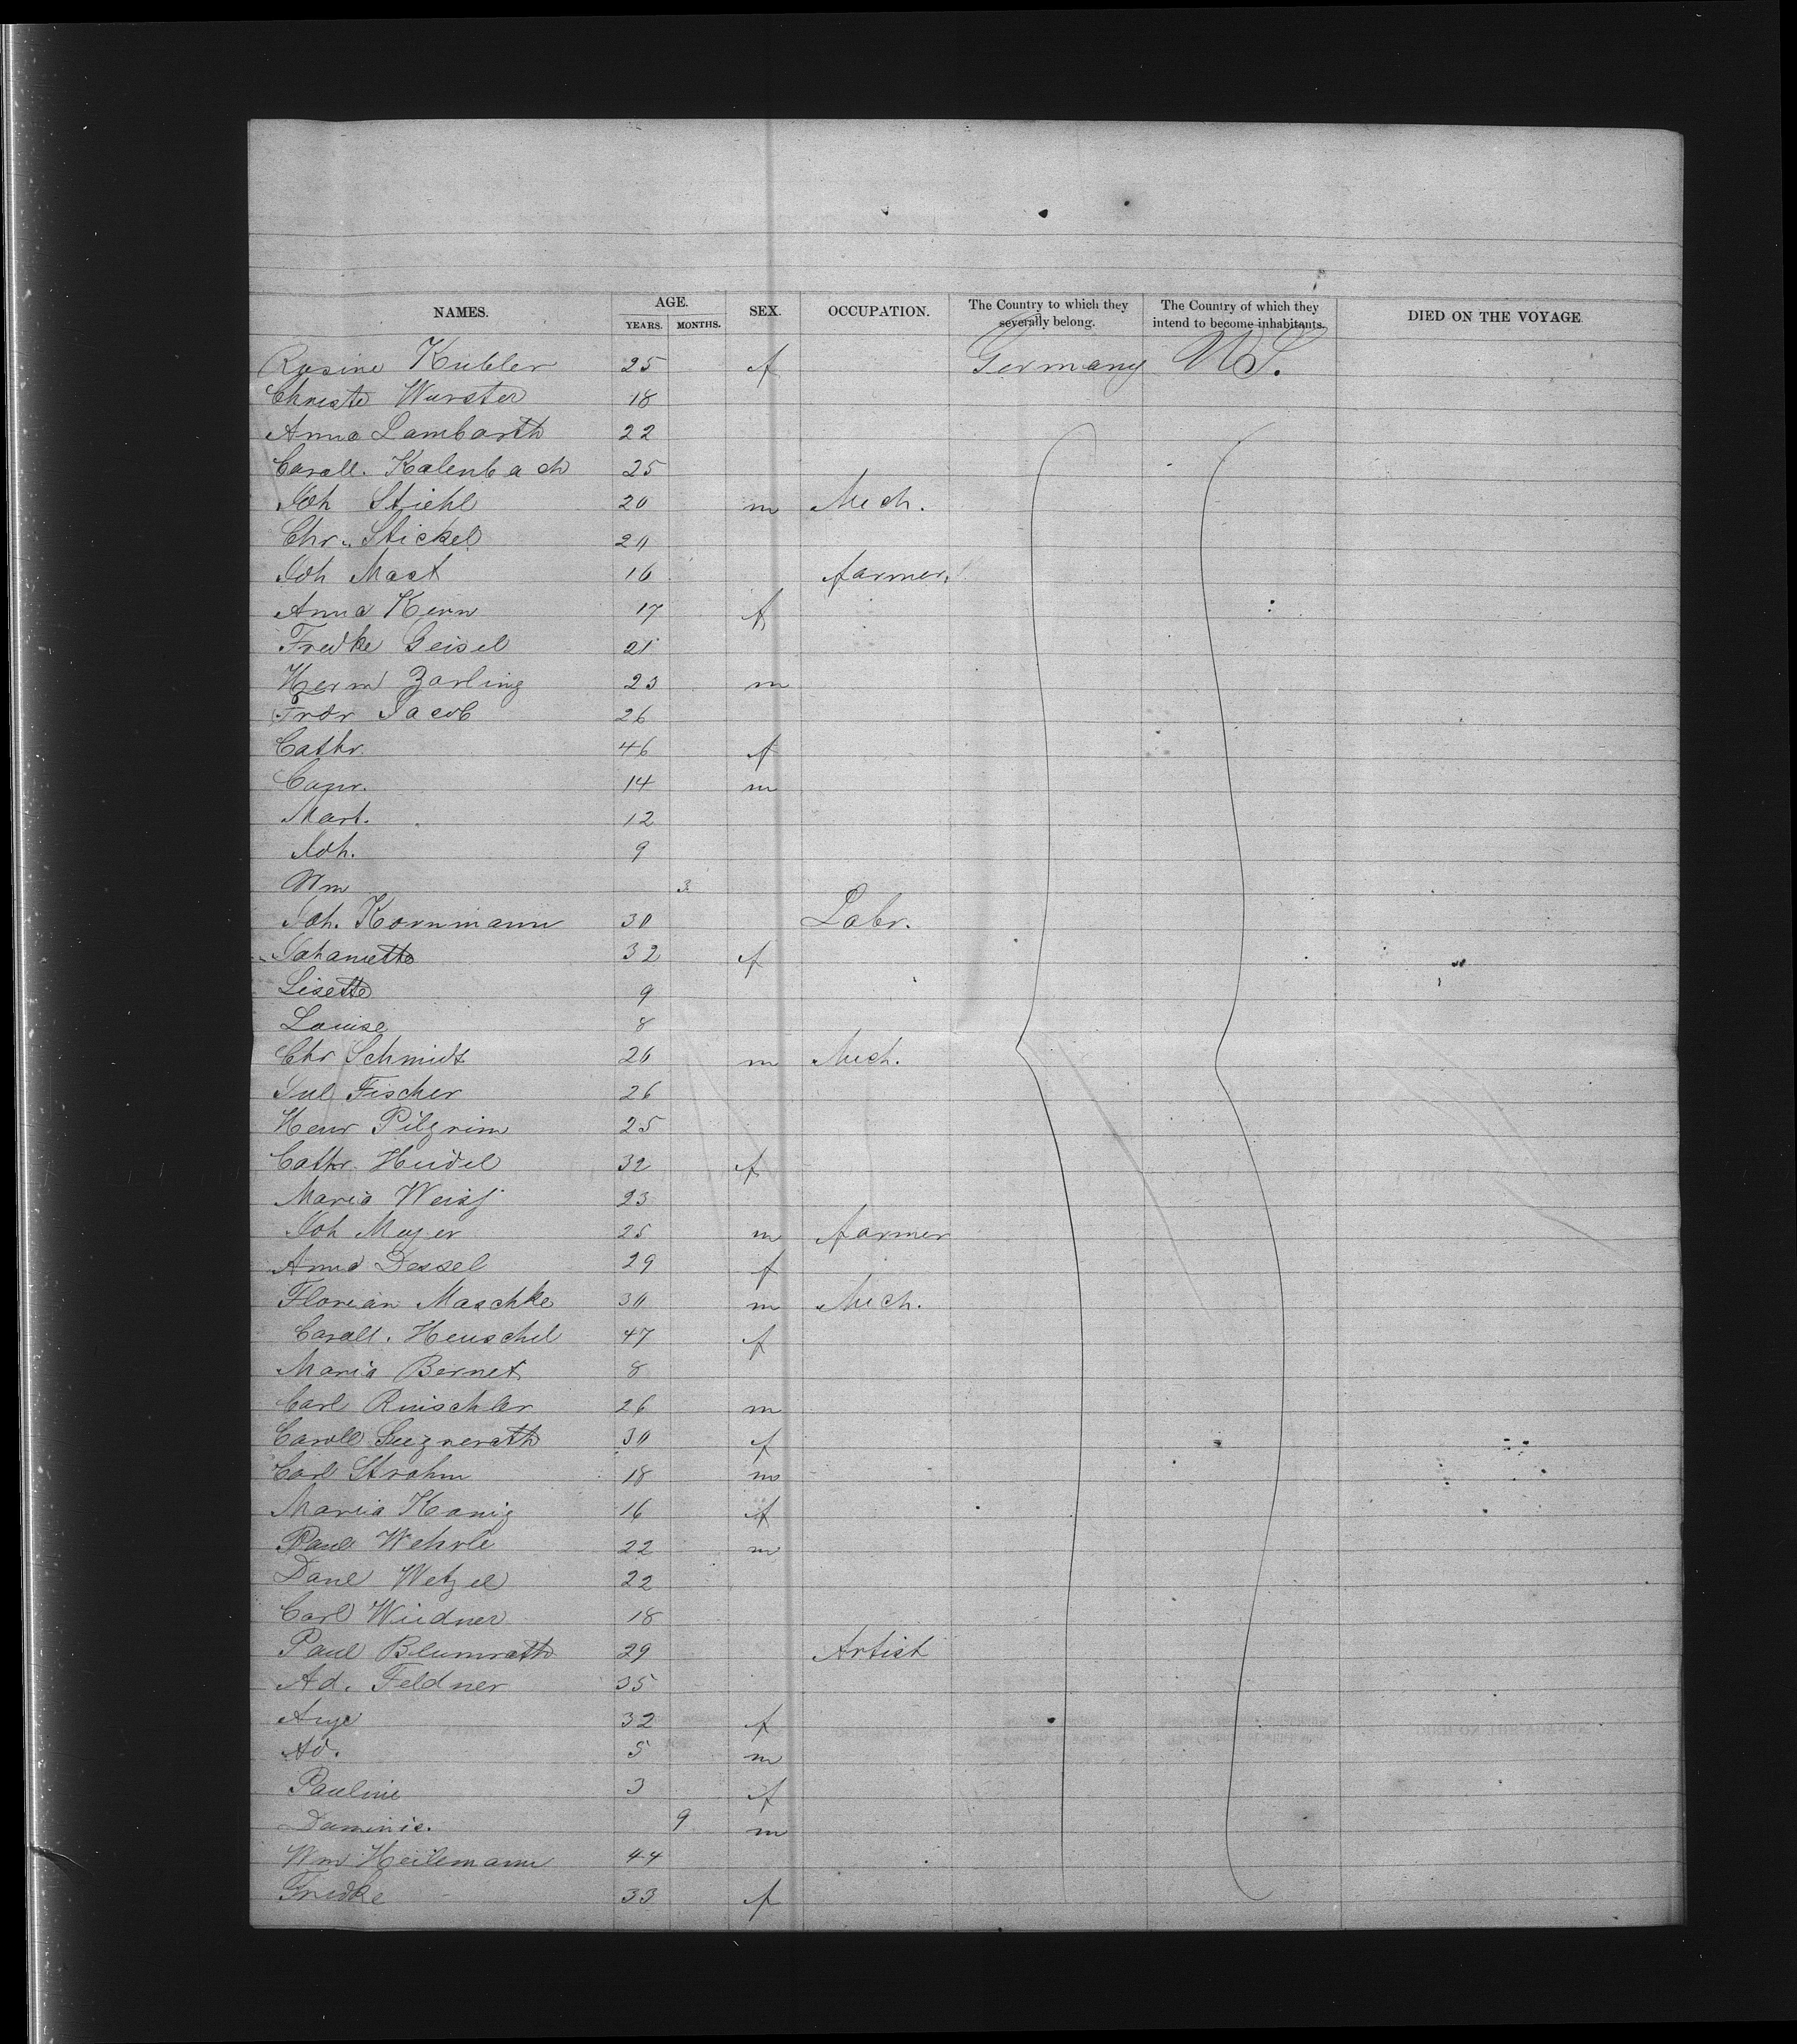 NAMES. AGE. YEARS. MONTHS. SEX. OCCUPATION. The Country to which they severally belong. The Country of which they intend to become inhabitants. DIED ON THE VOYAGE
Rosine Kubler 25 f Germany U.S.
Christe Wurster 18
Anna Lambarth 22
Caroll. Kalenbach 25
Joh Stiehl 20 m Mech.
Chr. Stickel 20
Joh Mast 16 farmer.
Anna Kern 17 f
Fredke Geisel 21
Herm Zarling 23 m
Frdr Jacob 26
Cathr. 46 f
14 m
Mart. 12
Joh. 9
Wm 3
Joh. Kornmann 30 Labr.
Johanette 32 f
Lisette 9
Louise 8
Chr Schmidt 26 m Mech.
Jul Fischer 26
Henr Pilgrim 25
Cathr. Heidel 32 f
Maria Weiss 23
Joh Mayer 25 m farmer
Anna Dessel 29 f
Florian Maschke 30 m Mech.
Caroll. Henschel 47 f
Maria Bernet 8
Carl 26 m
Caroll 30 f
Carl Strohm 18 m
Maria Konig 16 f
Paul Wehrle 22 m
Danl Wetzel 22
Carl Weidner 18
Paul Blumrath 29 Artist
Ad. Feldner 35
32 f
Ad. 5 m
Pauline 3 f
Dominic. 9 m
Wm Heilemann 44
Fredke 33 f